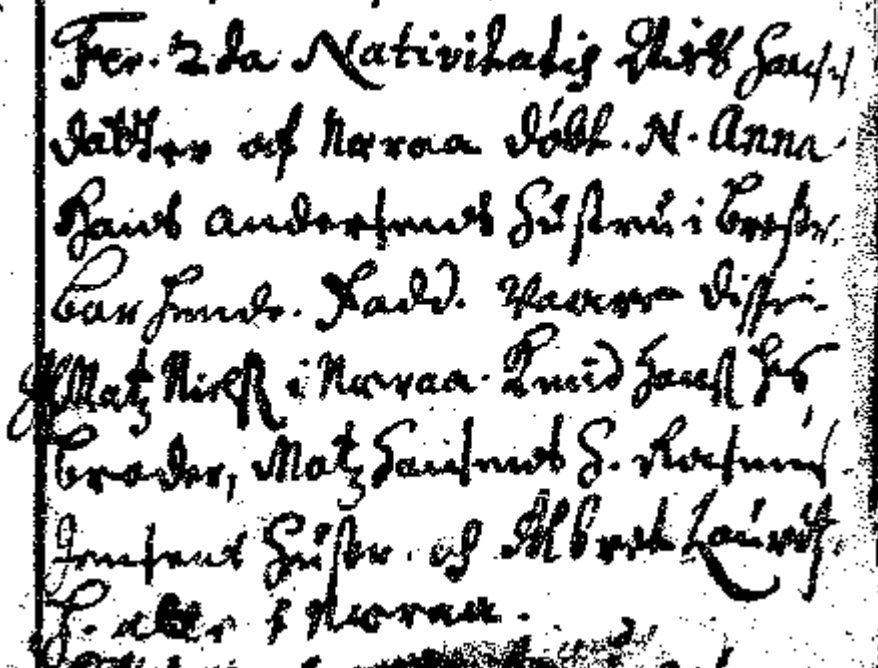 Fer. 2da Nativitatis Niels Hans
datter af Nørraa døbt. N. Anna
Hans Andersens Hustru i Brose
bar hende. Fadd. Vaare disse:
Matz Niels i Nørraa. Knud Hans hs
broder, Matz Hansens H. Rasmus
Jensens Huster och Albret Lauritz
H. alle i Nørraa.